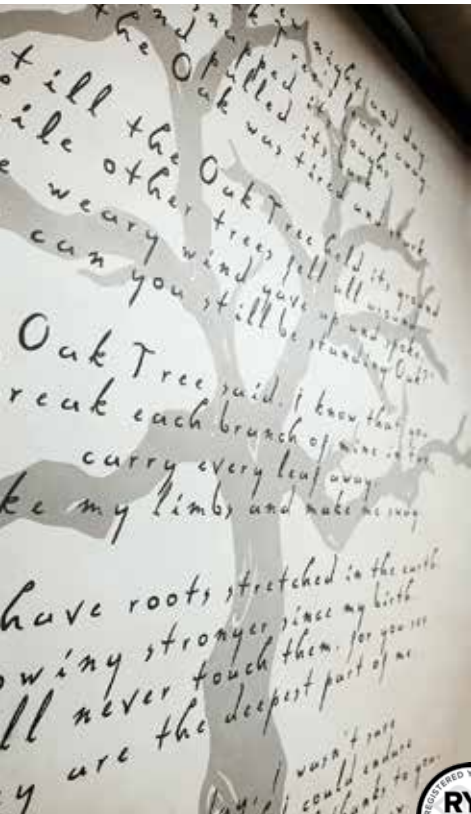 night and day
and snapped its leaves away
the Oak pulled its boughs
Oak was tired and stark
till the Oak Tree held its ground
ile other trees fell all around
e weary wind gave up and spoke,
can you still be standing Oak?"
Oak Tree said, i know that you
reak each branch of mine in two,
carry every leaf away,
ke my limbs and make me sway
have roots stretched in the earth
owing stronger since my birth
ll never touch them, for you see
ey are the deepest part of me
ay, i wasn't sure
i could endure
thanks to you,
REGISTERED Y
RY